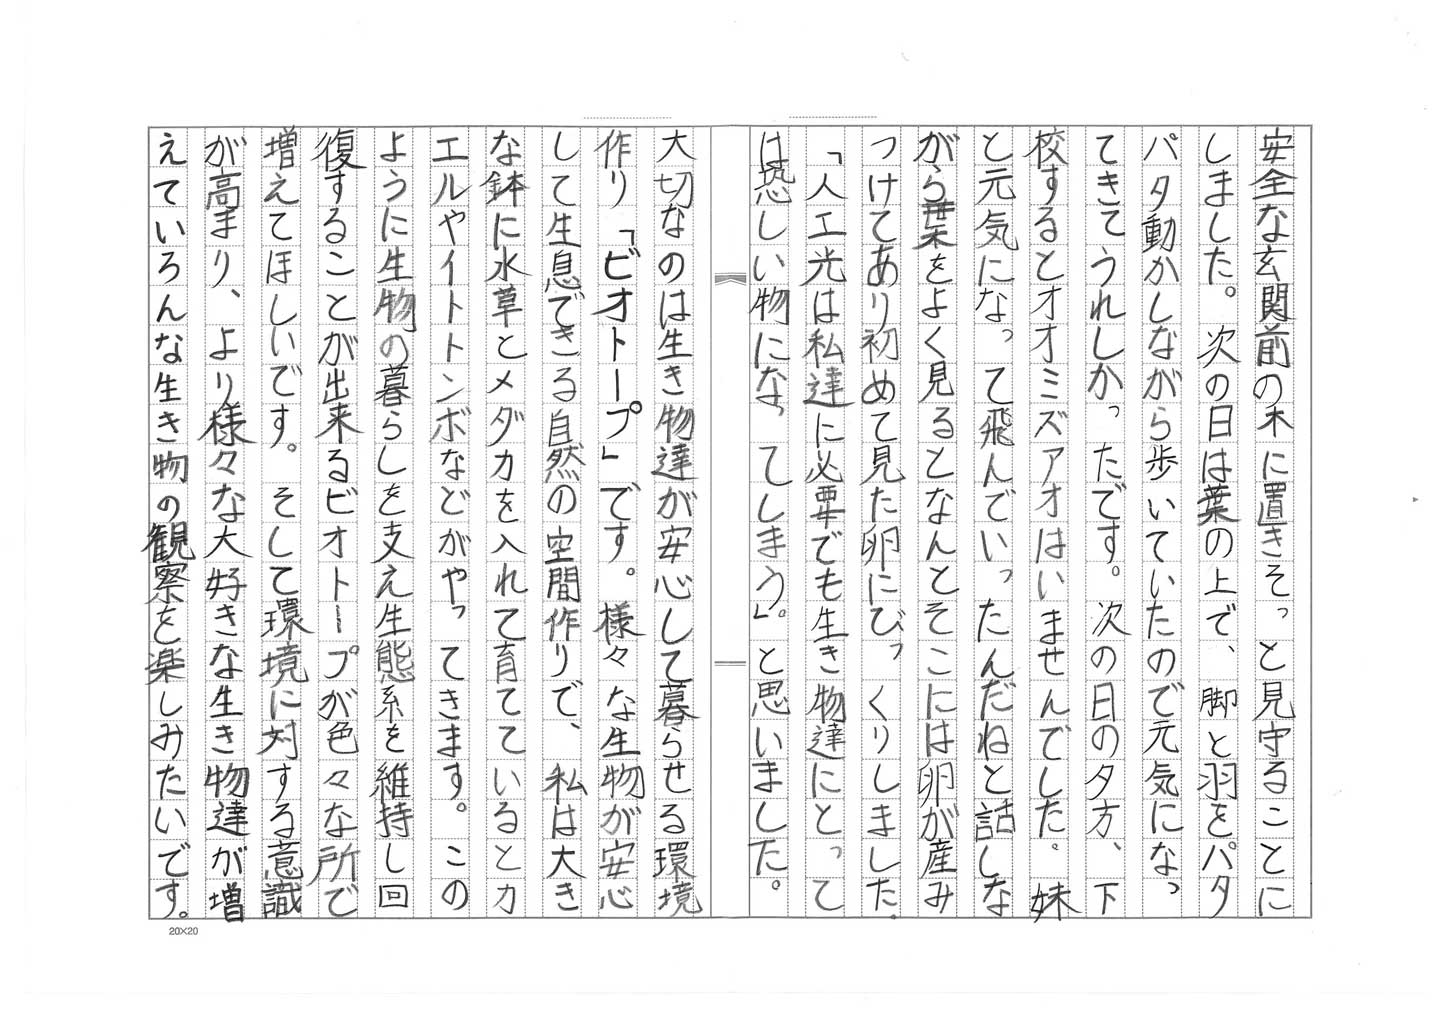 安全な玄関前の木に置きそっと見守ることに
しました。次の日は葉の上で、脚と羽をパタ
パタ動かしながら歩いていたので元気になっ
てきてうれしかったです。次の日の夕方、下
校するとオオミズアオはいませんでした。妹
と元気になって飛んでいったんだねと話しな
がら葉をよく見るとなんとそこには卵が産み
つけてあり初めて見た卵にびっくりしました。
「人工光は私達に必要でも生き物達にとって
は恐しい物になってしまう」。と思いました。
大切なのは生き物達が安心して暮らせる環境
作り「ビオトープ」です。様々な生物が安心
して生息できる自然の空間作りで、私は大き
な鉢に水草とメダカを入れて育てているとカ
エルやイトトンボなどがやってきます。この
ように生物の暮らしを支え生態系を維持し回
復することが出来るビオトープが色々な所で
増えてほしいです。そして環境に対する意識
が高まり、より様々な大好きな生き物達が増
えていろんな生き物の観察を楽しみたいです。
20×20